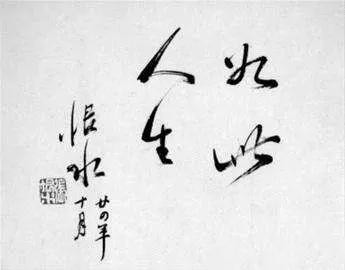 如此
人生
恨水
廿四年
十月